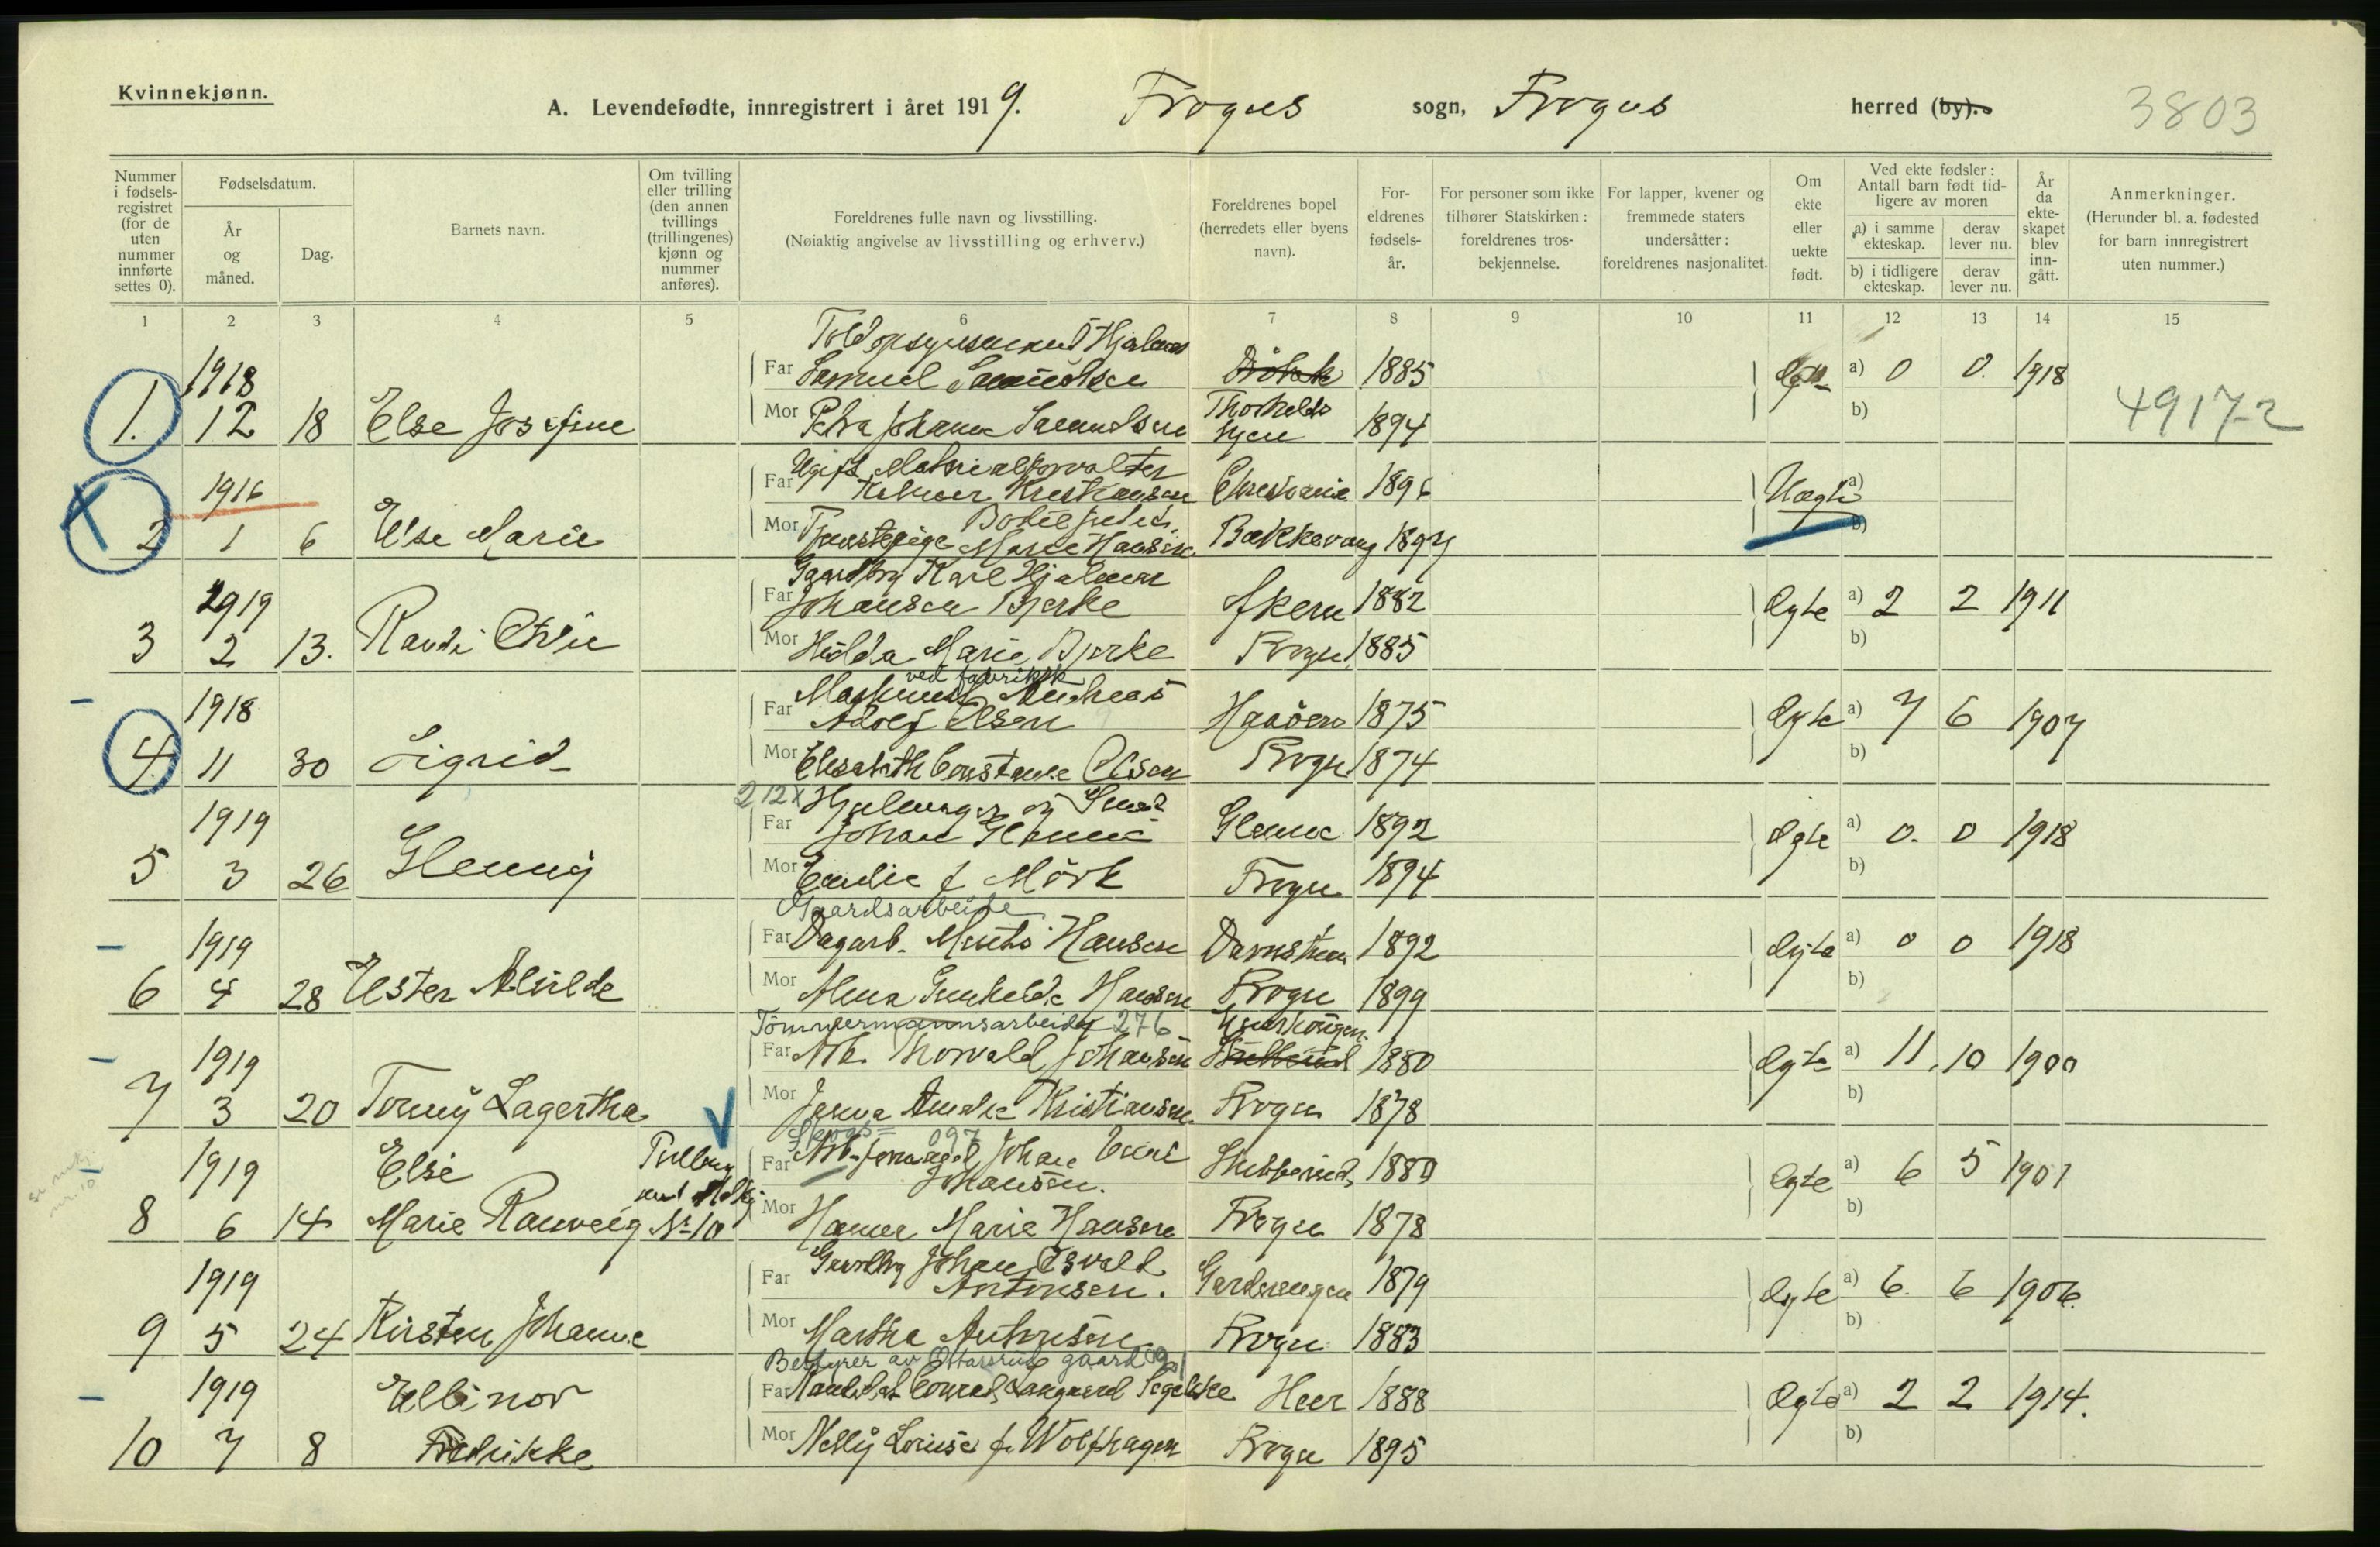 Kvinnekjønn.
A. Levendefødte, innregistrert i året 1919. Frogns sogn, Frogns herred (by). 3803
Nummer i fødsels-registret (for de uten nummer innførte settes 0).
Fødselsdatum.
År og måned.
Dag.
Barnets navn.
Om tvilling eller trilling (den annen tvillings (trillingenes) kjønn og nummer anføres).
Foreldrenes fulle navn og livsstilling.
(Nøiaktig angivelse av livsstilling og erhverv.)
Foreldrenes bopel (herredets eller byens navn).
For-eldrenes fødsels-år.
For personer som ikke tilhører Statskirken: foreldrenes tros-bekjennelse.
For lapper, kvener og fremmede staters undersåtter: foreldrenes nasjonalitet.
Om ekte eller uekte født.
Ved ekte fødsler: Antall barn født tid-ligere av moren
a) i samme ekteskap.
derav lever nu.
b) i tidligere ekteskap.
derav lever nu.
År da ekte-skapet blev inn-gått.
Anmerkninger.
(Herunder bl. a. fødested for barn innregistrert uten nummer.)
1 2 3 4 5 6 7 8 9 10 11 12 13 14 15
Hjalmar
1918 Far Samuel Samuelsen Drøbak 1885 a) 0 0 1918
1. 12 18 Else Josefine Mor Petra Johanne Samuelsen 1894 b) 49172
Ugift Materialforvalter
1916 Far Kristiansen Christiania 1896 Uegte a)
Bodil
2 1 6 Else Marie Mor Tjenestepige Marie Hansen Bakkevang 1897 b)
Gaardbr Karl Hjalmar
1919 Far Johansen Bjerke 1882 Egte a) 2 2 1911
3 2 13. Randi Mor Hilda Marie Bjerke Frogn 1885 b)
ved fabrikk
Maskinist Andreas
1918 Far Adolf Olsen Haaøen 1875 Egte a) 7 6 1907
4. 11 30 Sigrid Mor Elisabeth Constance Olsen Frogn 1874 b)
212x Hjulmager og Smed
1919 Far Johan Glenne Glenne 1892 Egte a) 0. 0 1918
5 3 26 Mor Emilie f Mørk Frogn 1894 b)
Gaardsarbeide
1919 Far Dagarb. Hansen 1892 Egte a) 0 0 1918
6 4 28 Ester Alvilde Mor Alma Gunhilda Hansen Frogn 1899 b)
Tømmermannsarbeider 276
1919 Far Arb. Thorvald Johansen 1880 Egte a) 11. 10 1900
7 3 20 Tonny Lagertha Mor Amalie Kristiansen Frogn 1878 b)
Skogs= 097
1919 Else Tvilling Far Arb. Johan Johansen. 1880 Egte a) 6 5 1901
8 6 14 Marie Ranveig No 10 Mor Hanna Marie Hansen Frogn 1878 b)
Gaardbr Johan Osvald
1919 Far Antonsen. Gardsengen 1879 Egte a) 6. 6 1906.
9 5 24 Kirsten Johanne Mor Martha Antonsen Frogn 1883 b)
Bestyrer av Ottarsrud gaard
1919 Ellinor Far Conrad Langaard Segelcke Heer 1888 Egte a) 2 2 1914.
10 7 8 Fredrikke Mor Nelly Louise f. Wolfhagen Frogn 1895 b)